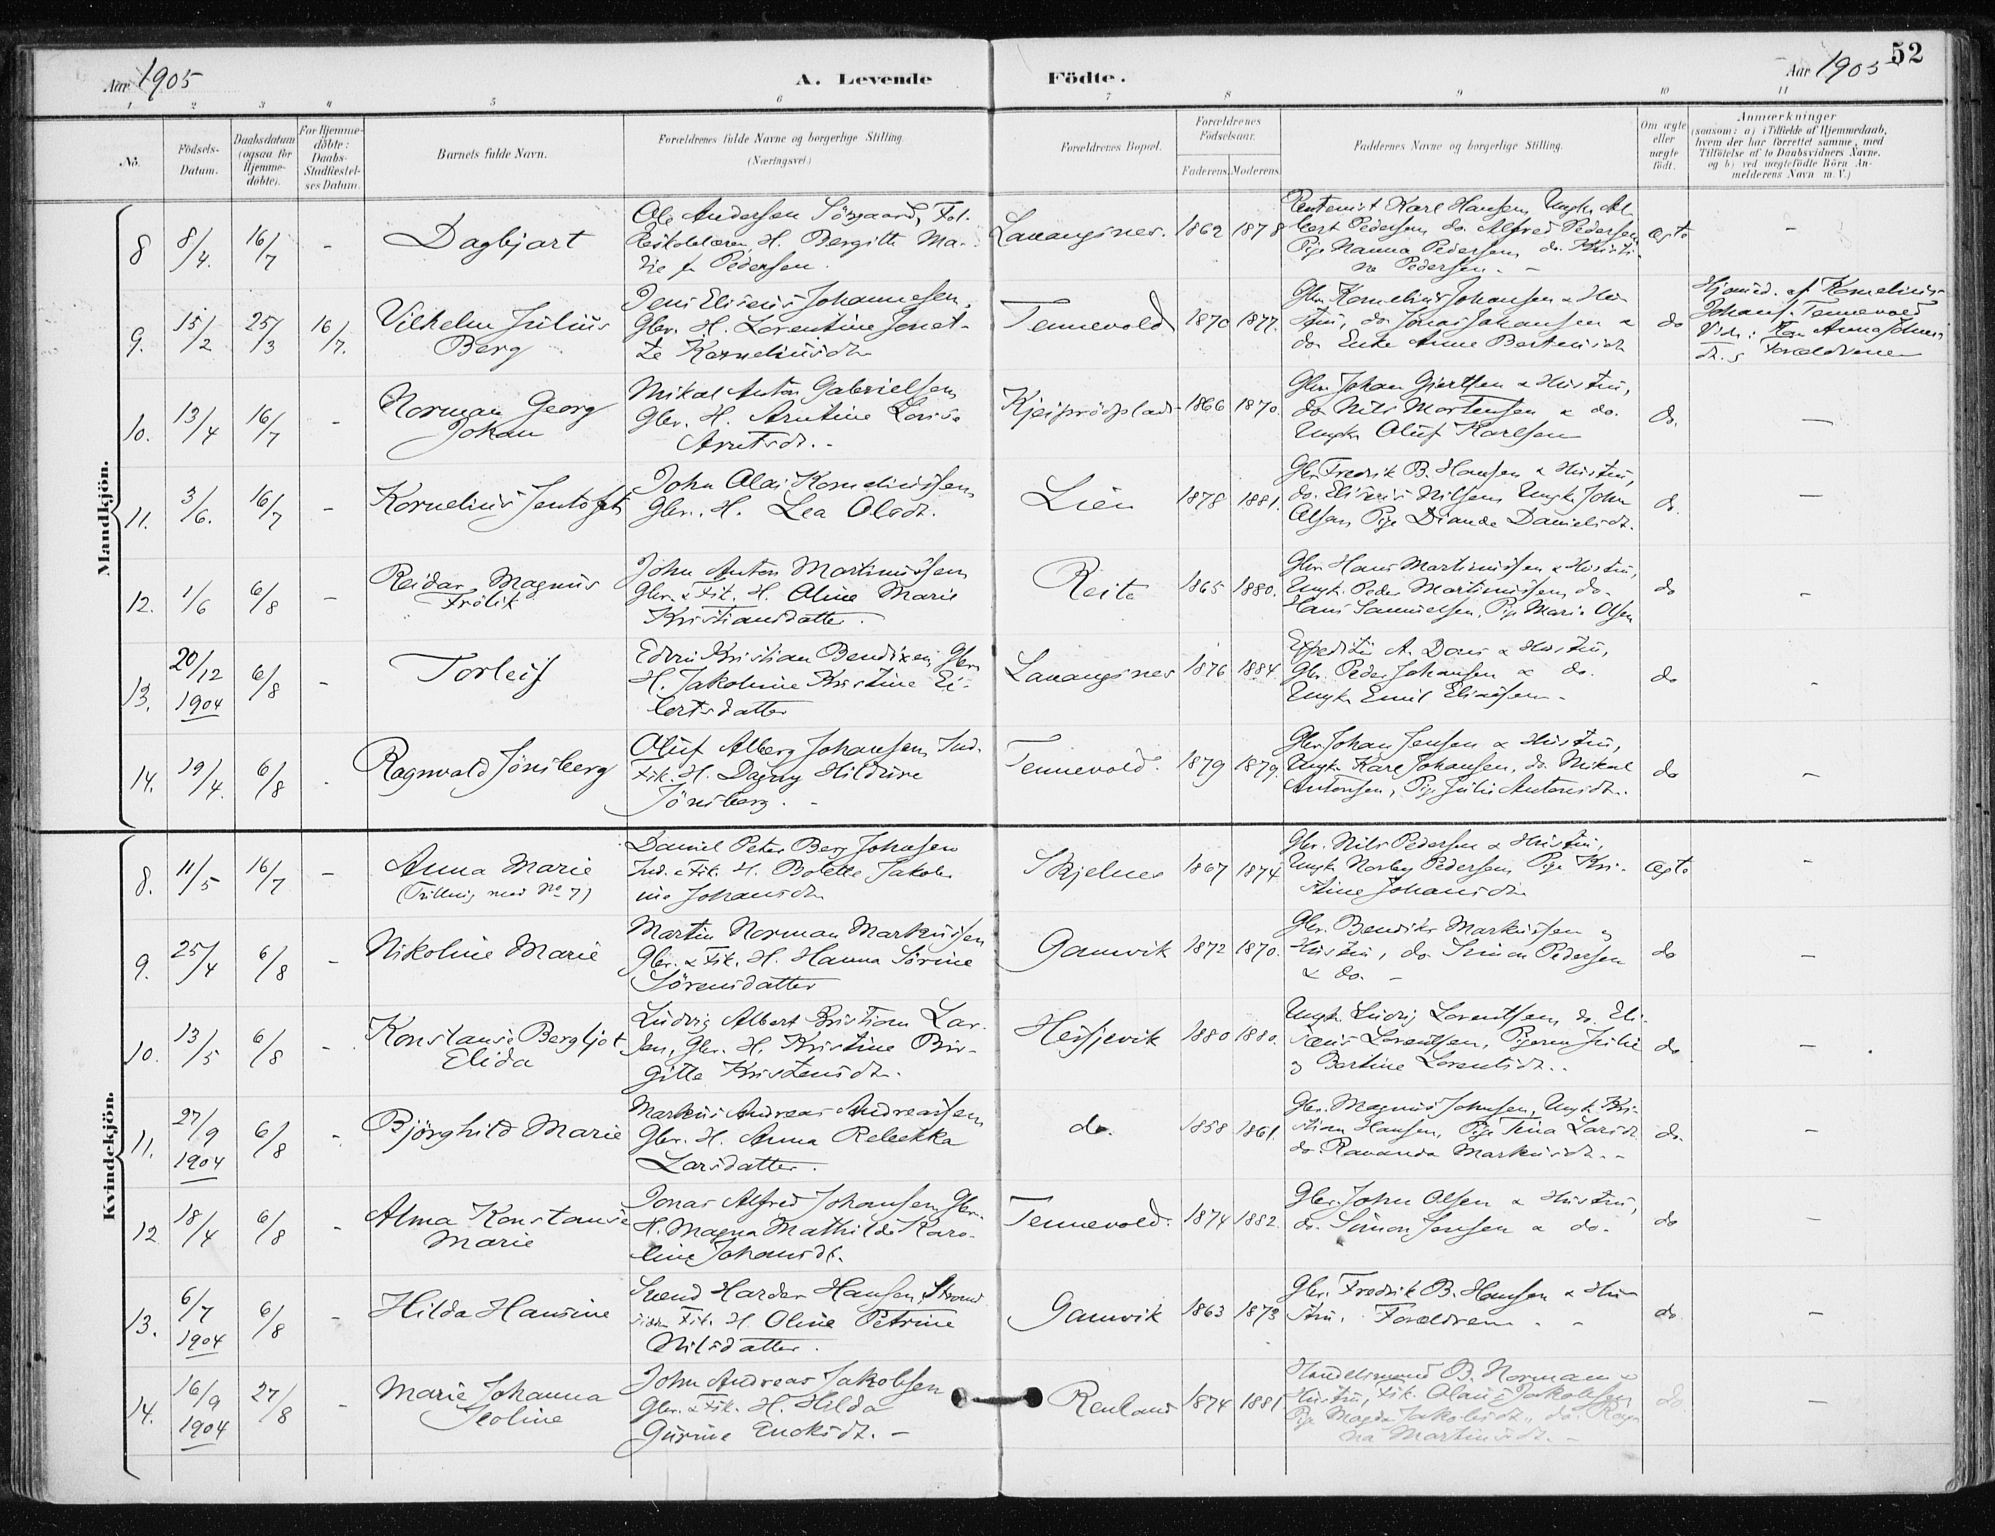 Aar 1905
A. Levende
Födte.
Aar 1905
52
1 2 3 4 5 6 7 8 9 10 11
No.
Födsels-Datum.
Daabsdatum (ogsaa for Hjemme-döbte).
For Hjemme-döbte: Daabs-Stadfæstel-ses Datum.
Barnets fulde Navn.
Forældrenes fulde Navne og borgerlige Stilling.
(Næringsvei)
Forældrenes Bopæl.
Forældrenes Födselsaar.
Faderens. Moderens.
Faddernes Navne og borgerlige Stilling.
Om ægte eller uægte födt.
Anmærkninger
(saasom: a) i Tilfælde af Hjemmedaab,
hvem der har forrettet samme, med
Tilföielse af to Daabsvidners Navne.
og b) ved uægtefödte Börn An-
melderens Navn m. V.)
Mandkjön.
8 8/4. 16/7 - Dagbjart
Ole Andersen Sörgaard, Fol-
keskolelærer, H. Bergitte Ma-
rie f. Pedersen.
Lavangsnes. 1862 1878
Karl Hansen, Ungk. Al-
bert Pedersen, do. Alfred Pedersen,
Pige Nanna Pedersen, do. Kristi-
ne Pedersen. -
ægte -
9. 15/2 25/3 16/7. Vilhelm Julius
Berg
Jens Eliseus Johannesen,
Gbr. H. Lorentine Jonet-
te Korneliusdr.
Tennevold 1870 1877.
Gbr. Kornelius Johansen & Hu-
stru, do. Jonas Johansen &
do. Enke Anne Berteusdr.
do
Hjemmed. af Kornelius
Johans. Tennevold
Vidn: Kone Anna Johans-
dr. & Forældrene
10. 13/4 16/7 - Norman Georg
Johan
Mikal Anton Gabrielsen,
Gbr. H. Arntine Lovise
Arntsdr. -
1866 1870.
Gbr. Johan Gjertsen & Hustru,
do Nils Mortensen & do.
Ungk. Oluf Karlsen
do. -
11. 3/6. 16/7 - Kornelius Jentoft
John Olai Korneliussen,
Gbr. H. Lea Olsdr.
Lien 1878 1881.
Gbr. Fredrik B. Hansen & Hustru,
do. Eliseus Nilsen, Ungk. John
Olsen, Pige Diande Danielsdr.
do. -
12. 1/6 6/8 - Reidar Magnus
Frölik
John Anton Martinussen,
Gbr. & Fisk. H. Oline Marie
Kristiansdatter.
Reite 1865 1880.
Gbr. Hans Martinussen & Hustru,
Ungk. Peder Martinussen, do.
Hans Samuelsen, Pige Marie Olsen
do -
13. 20/12 1904 6/8 - Torleif
Edvin Kristian Bendixen, Gbr.
H. Jakobine Kristine Ei-
lertsdatter
Lavangsnes 1876 1884.
Expeditör A. Dons & Hustru,
Gbr. Peder Johansen & do.
Ungk. Emil Eliassen -
do -
14. 19/4. 6/8 - Ragnvald Jönsberg
Oluf Alberg Johansen, Ind.
Fisk. H. Dagny Hildine
Jönsberg. -
Tennevold. 1879 1879.
Gbr. Johan Jensen & Hustru,
Ungk. Karl Johansen, do. Mikal
Antonsen, Pige Julie Antonsdr.
do -
Kvindekjön.
8. 11/5 16/7 - Anna Marie
(Trilling med No 7)
Daniel Peter Berg Johansen
Ind. & Fisk. H. Bolette Jakob-
ine Johansdr.
Skjelnes 1867 1874
Gbr. Nils Pedersen & Hustru,
Ungk. Norley Pedersen, Pige Kri-
stine Johansdr.
ægte -
9. 25/4 6/8 - Nikoline Marie
Martin Norman Markussen
Gbr. & Fisk. H. Hanna Sörine
Sörensdatter
Gamvik 1872 1870.
Gbr. Bendikt Markussen og
Hustru, do. Simon Pedersen
& do. -
do -
10. 13/5 6/8 - Konstanse Bergljot
Elida
Ludvig Albert Kristian Lar-
sen, Gbr. H. Kristine Bir-
gitte Kristensdr.
1880 1880.
Ungk. Ludvig Lorentsen, do. Eli-
sæus Lorentsen, Pigerne Julie
og Bertine Lorentsdr..
do -
11. 27/9 1904 6/8 - Björghild Marie
Markus Andreas Andreassen
Gbr. H. Anna Rebekka
Larsdatter.
do. 1858 1861.
Gbr. Magnus Johnsen, Ungk. Kri-
stian Hansen, Pige Tina Larsdr.
do. Ravanda Markusdr. -
do. -
12 18/4 6/8 - Alma Konstanse
Marie
Jonas Alfred Johansen, Gbr.
H. Magna Mathilde Karo-
line Johansdr.
Tennevold. 1874 1882.
Gbr. John Olsen & Hustru,
do. Simon Jensen & do.
do -
13. 6/7 1904 6/8 - Hilda Hansine
Svend Harder Hansen, Strand-
sidder Fisk. H. Oline Petrine
Nilsdatter.
Gamvik 1863 1873
Gbr. Fredrik B. Hansen & Hu-
stru, Forældrene. -
do -
14. 16/9 1904 27/8 - Marie Johanna
Jeoline
John Andreas Jakobsen
Gbr. & Fisk. H. Hilda
Gurine Enoksdr. -
Renland 1874 1881
Handelsmand B. Norman &
Hustru, Fisk. Olaus Jakobsen,
Pige Magda Jakobsdr., do. Ragn-
na Martinusdr. -
do. -